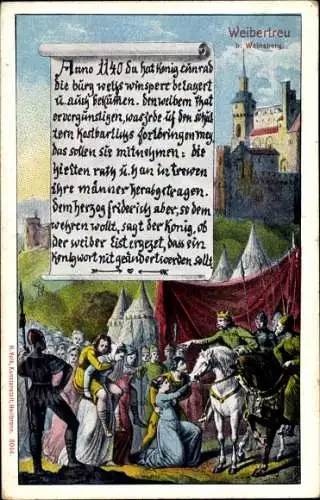 Weibertreu
b. Weinsberg.
Anno 1140 da hat König Cunrad
die bürg welfs winsperc belagert
u. auch bekümen. den weibern that
er vergünstigen, was jede üf den schül
tern kostbarlichs fortbringen meg
das sollen sie mitnehmen: die
hielten rath u. han in trewen
ihre männer herabgetragen.
dem herzog friderich aber, so dem
wehren wollt, sagt der König, ob
der weiber list ergezet, dass ein
Königwort nit geändert werden sollt